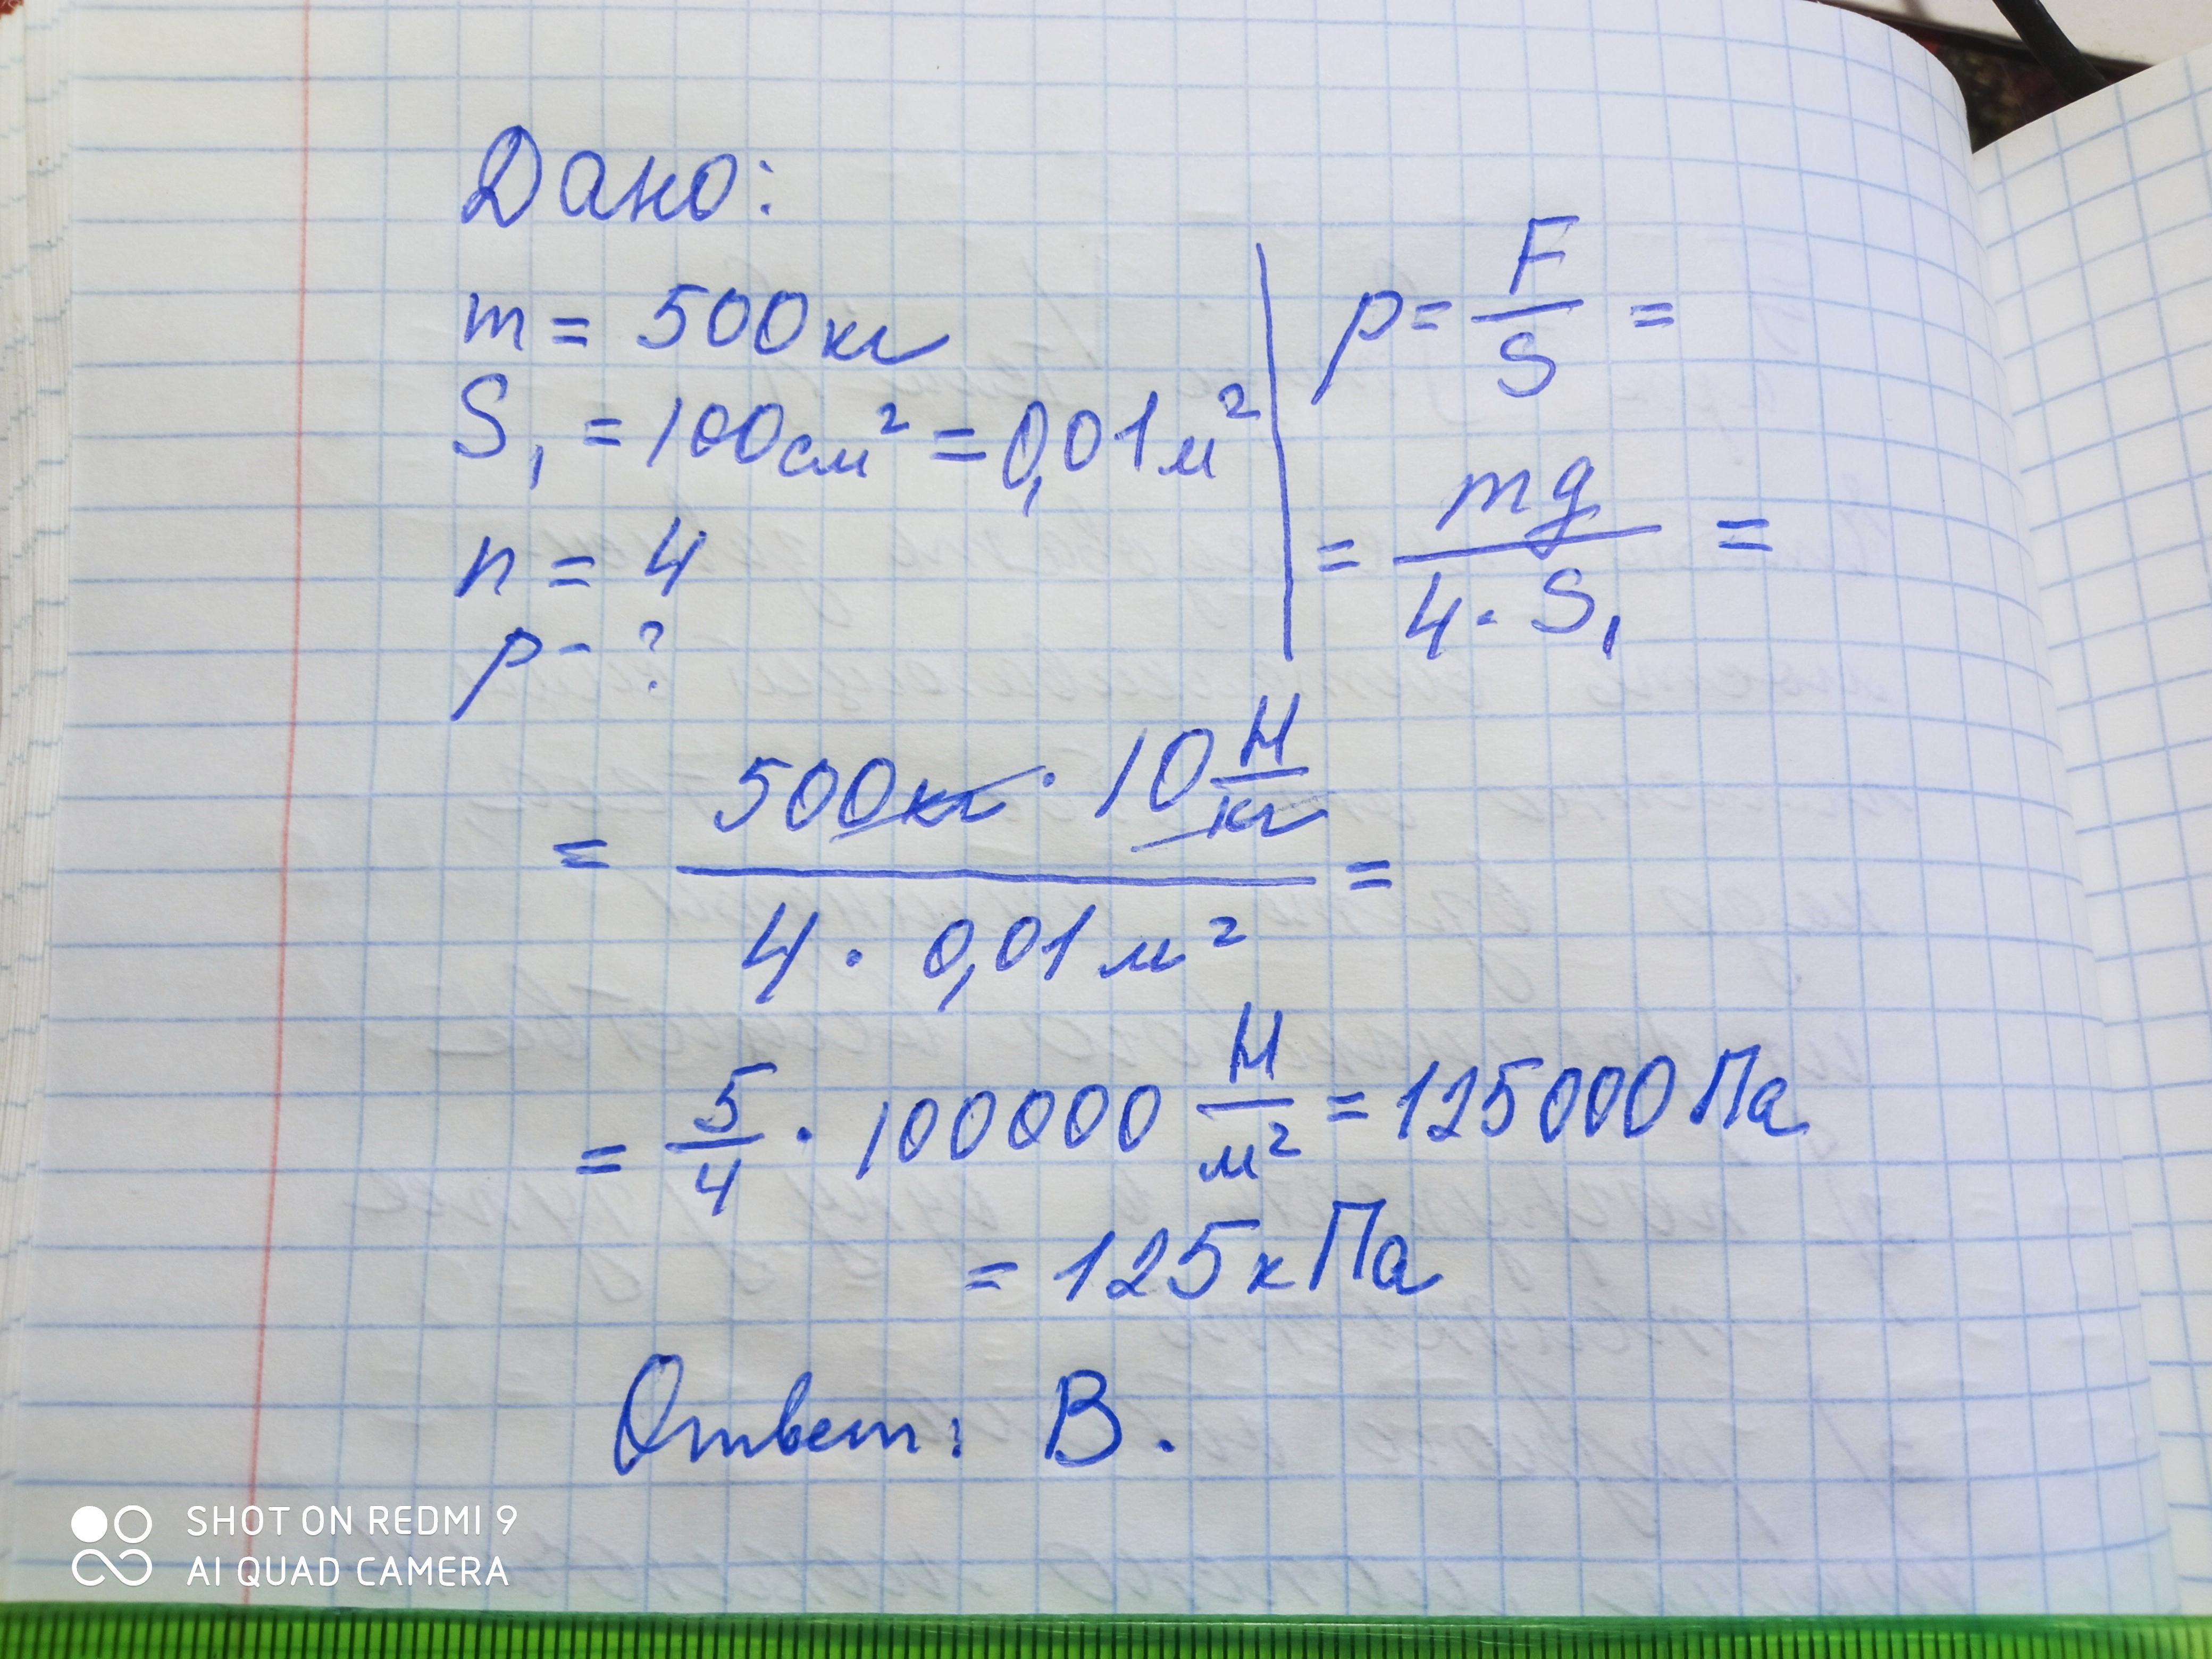 Дано:
m = 500 кг
S₁ = 100 см² = 0,01 м²
n = 4
p - ?
p = F/S =
= mg/(4 · S₁) =
= (500 кг · 10 Н/кг)/(4 · 0,01 м²) =
= 5/4 · 100000 Н/м² = 125000 Па
= 125 кПа
Ответ: В.
SHOT ON REDMI 9
AI QUAD CAMERA